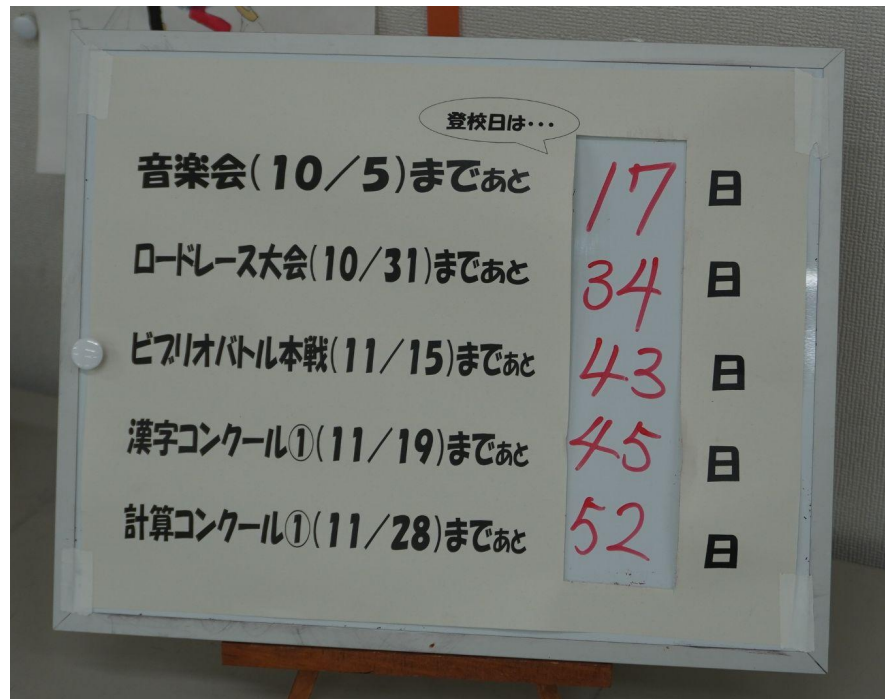 登校日は・・・
音楽会(10/5)まであと 17 日
ロードレース大会(10/31)まであと 34 日
ビブリオバトル本戦(11/15)まであと 43 日
漢字コンクール①(11/19)まであと 45 日
計算コンクール①(11/28)まであと 52 日